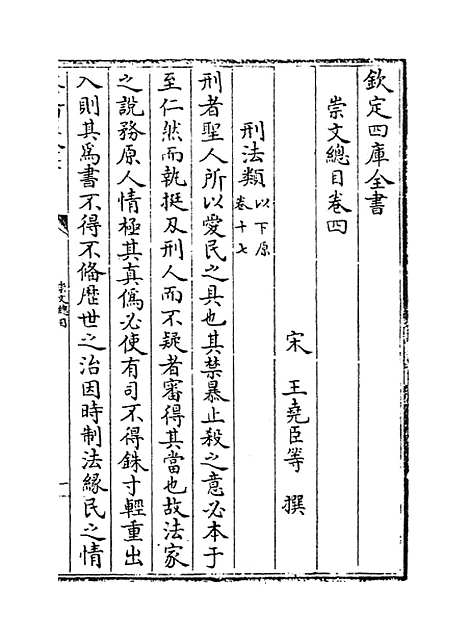 欽定四庫全書
崇文總目卷四
宋 王堯臣等 撰
刑法類以下原卷十七
刑者聖人所以愛民之具也其禁暴止殺之意必本于
至仁然而執挺刃刑人而不疑者審得其當也故法家
之說務原人情極其真偽必使有司不得銖寸輕重出
入則其為書不得不備歴世之治因時制法緣民之情
崇文總目
一